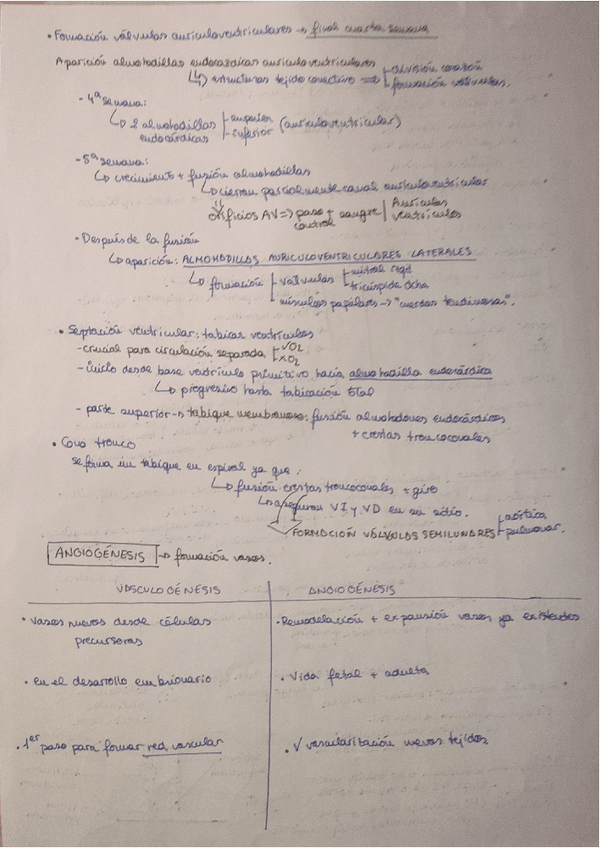 • Formación válvulas auriculoventriculares → final cuarta semana
Aparición almohadillas endocárdicas auriculoventriculares
↳ estructuras tejido conectivo ⇒ división corazón
formación válvulas.
- 4ª semana:
↳ 2 almohadillas endocárdicas
superior
inferior
(auriculoventricular)
- 5ª semana:
↳ crecimiento + fusión almohadillas
↳ cierran parcialmente canal auriculoventricular
⇓
orificios AV ⇒ paso + sangre
control
Aurículas
ventrículos
- Después de la fusión
↳ aparición: ALMOHADILLAS AURICULOVENTRICULARES LATERALES
↳ formación
válvulas
mitral
tricúspide dcha
músculos papilares → "cuerdas tendinosas".
• Septación ventricular: tabicar ventrículos
- crucial para circulación separada
√O2
×O2
- inicio desde base ventrículo primitivo hacia almohadilla endocárdica
↳ progresivo hasta tabicación total
- parte superior → tabique membranoso: fusión almohadones endocárdicos
+ crestas troncoconales
• Cono tronco
se forma un tabique en espiral ya que:
↳ fusión crestas troncoconales + giro
↳ aseguran VI y VD en su sitio.
FORMACIÓN VÁLVULAS SEMILUNARES
aórtica
pulmonar.
ANGIOGÉNESIS → formación vasos.
VASCULOGÉNESIS
ANGIOGÉNESIS
• Vasos nuevos desde células
precursoras
• Remodelación + expansión vasos ya existentes
• en el desarrollo embrionario
• Vida fetal + adulta
• 1er paso para formar red vascular
• V vascularización nuevos tejidos